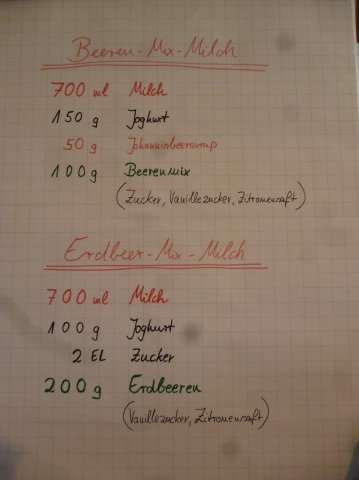 Beeren-Mix-Milch
700 ml Milch
150 g Joghurt
50 g Johannisbeersirup
100 g Beerenmix
(Zucker, Vanillezucker, Zitronensaft)
Erdbeer-Mix-Milch
700 ml Milch
100 g Joghurt
2 EL Zucker
200 g Erdbeeren
(Vanillezucker, Zitronensaft)